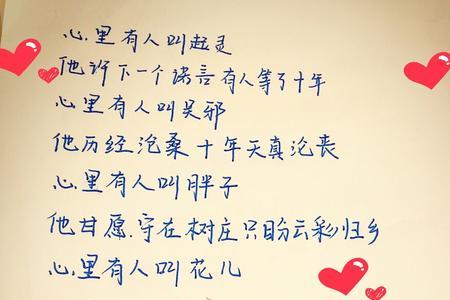 心里有人叫起灵
他许下一个诺言有人等了十年
心里有人叫吴邪
他历经沧桑十年天真沦丧
心里有人叫胖子
他甘愿.守在树庄只盼云彩归乡
心里有人叫花儿